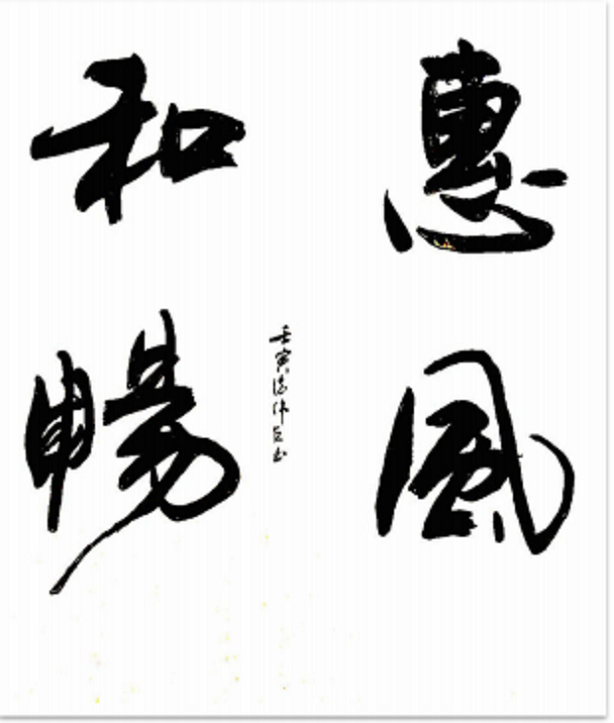 惠風
和暢
壬寅